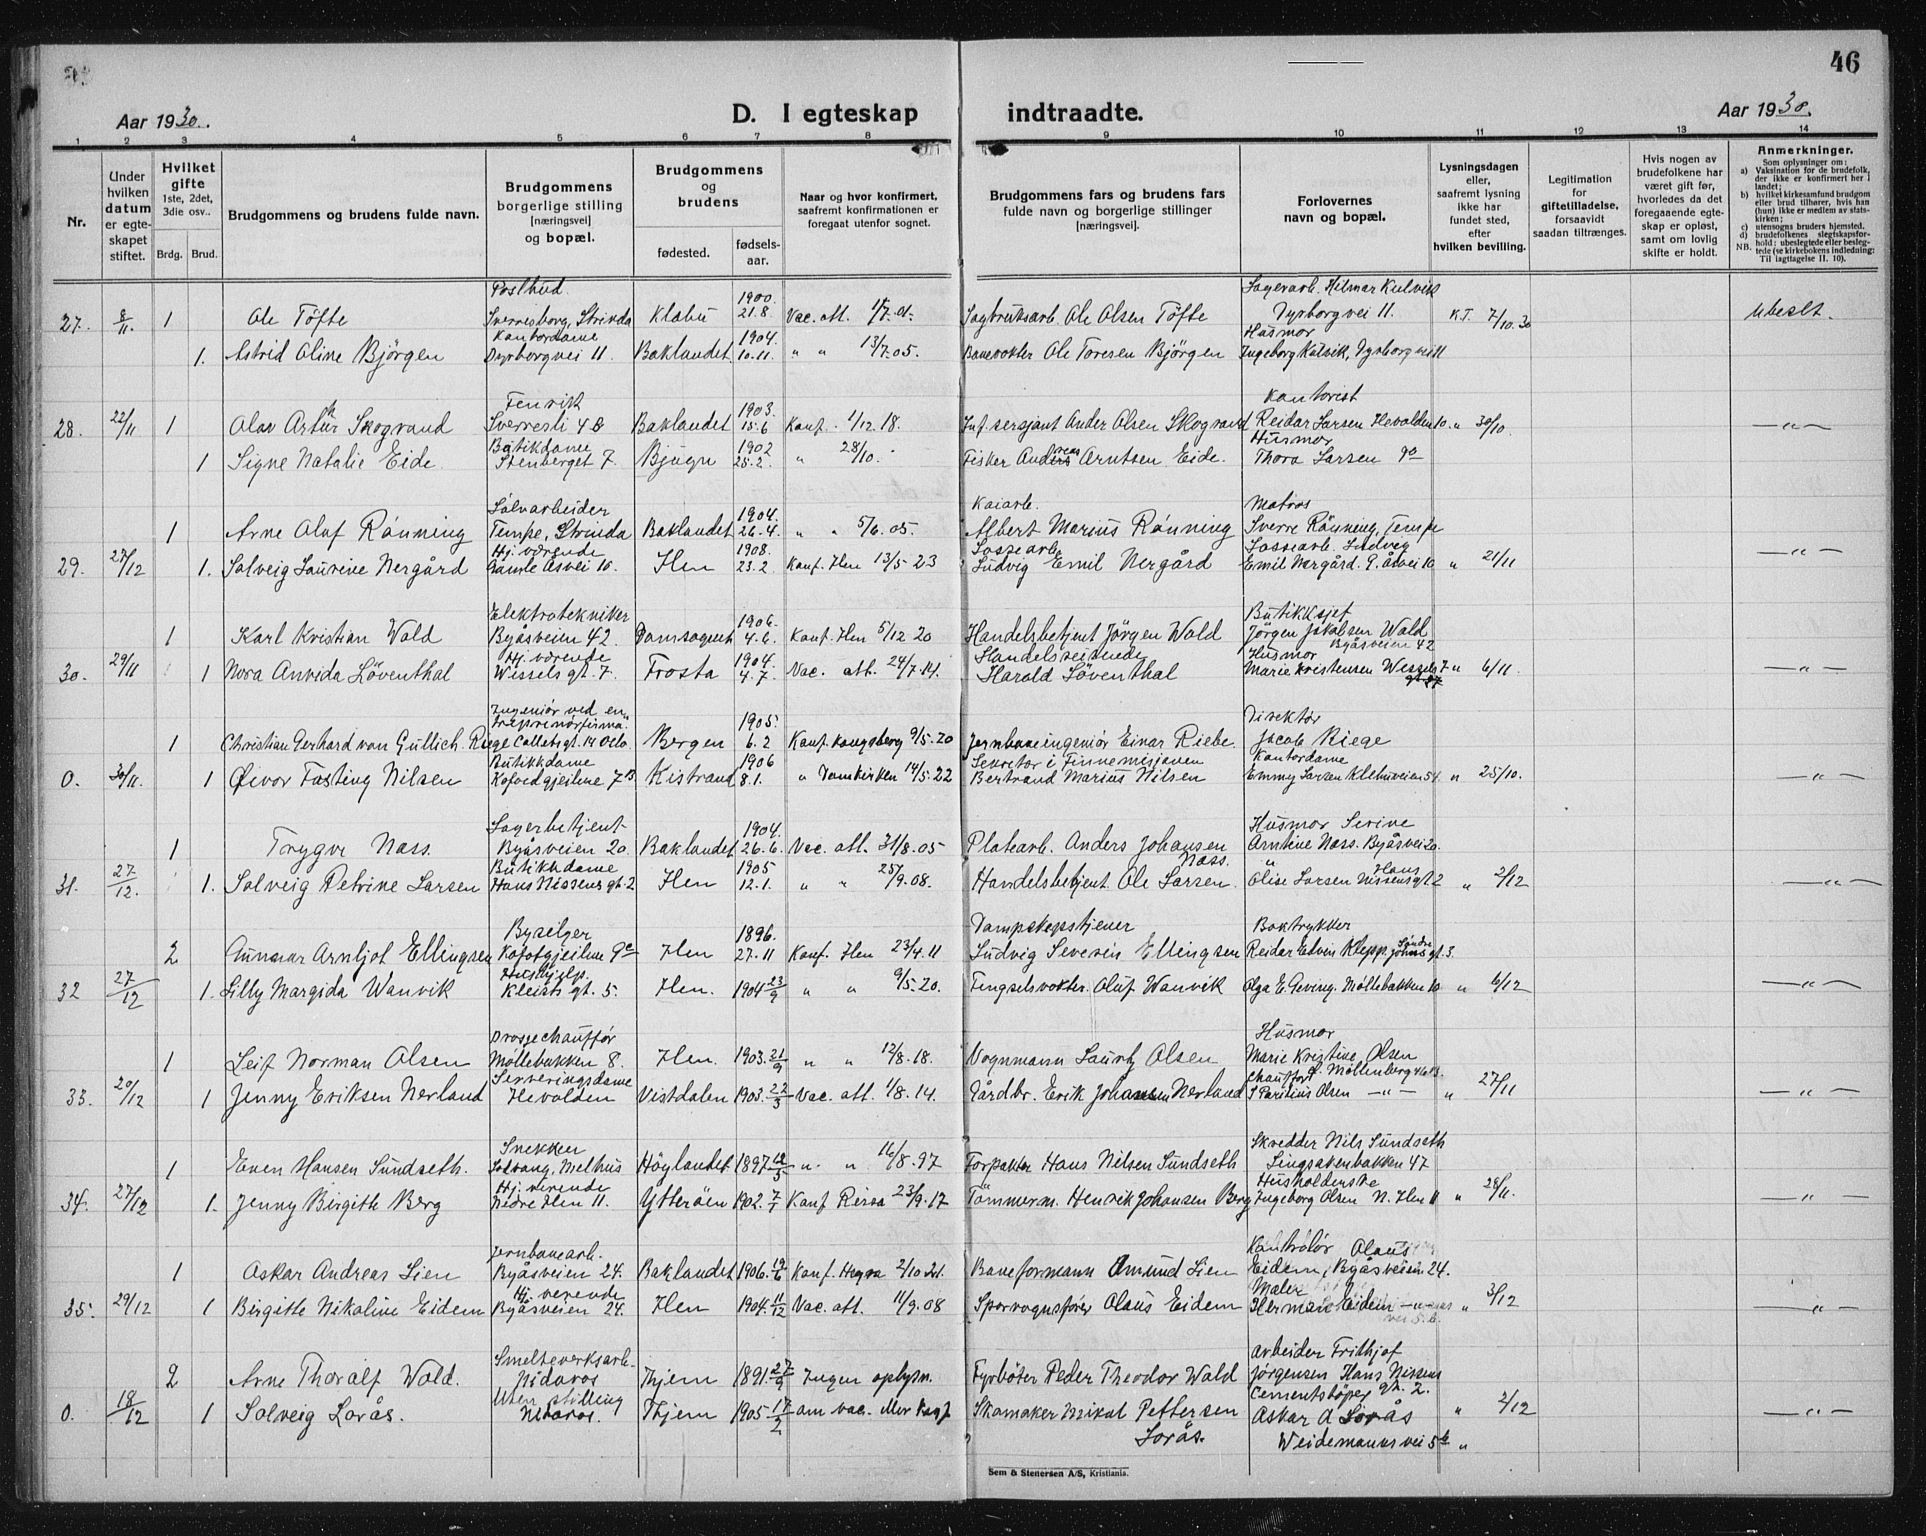 46
Aar 1930. D. I egteskap indtraadte. Aar 1930.
1 2 3 4 5 6 7 8 9 10 11 12 13 14
Nr.
Under hvilken datum er egte-skapet stiftet.
Hvilket gifte 1ste, 2det, 3die osv.. Brdg. Brud.
Brudgommens og brudens fulde navn.
Brudgommens borgerlige stilling [næringsvei] og bopæl.
Brudgommens og brudens fødested. fødsels-aar.
Naar og hvor konfirmert, saafremt konfirmationen er foregaat utenfor sognet.
Brudgommens fars og brudens fars fulde navn og borgerlige stillinger [næringsvei].
Forlovernes navn og bopæl.
Lysningsdagen eller, saafremt lysning ikke har fundet sted, efter hvilken bevilling.
Legitimation for giftetilladelse, forsaavidt saadan tiltrænges.
Hvis nogen av brudefolkene har været gift før, hvorledes da det foregaaende egte-skap er opløst, samt om lovlig skifte er holdt.
Anmerkninger.
Som oplysninger om:
a) Vaksination for de brudefolk, der ikke er konfirmert her i landet;
b) hvilket kirkesamfund brudgom eller brud tilhører, hvis han (hun) ikke er medlem av stats-kirken;
c) utensogns bruders hjemsted.
d) brudefolkenes slegtskapsfor-hold: ubeslegtede eller besleg-
NB. tede (se kirkebokens indledning: Til iagttagelse II. 10).
Postbud 1900 Lagerarb. Hilmar Kulvik
27. 8/11. 1 Ole Töfte Sverresborg, Strinda Klæbu 21.8 Vac. att. 1/7.01. Sagbruksarb. Ole Olsen Töfte Dyrborgvei 11. K.T. 7/10.30 Ubeslt.
Kontordame 1904. Husmor
1. Astrid Oline Björgen Dyrborgvei 11 Baklandet 10.11. " " 13/7.05. Banevokter Ole Toresen Björgen Ingeborg Kulvik, Dyrborgvei 11
Fenrik 1903 Kontorist
28. 22/11 1 Olav Artur Skogrand Sverresli 4 B Baklandet 15.6 Konf. 1/12.18. Inf. sersjant Ander Olsen Skogrand Reidar Larsen Hevolden 10. " 30/10. —"—
Butikdame 1902 Husmor
1 Signe Natalie Eide Stenberget 7. Bjugn 25.2. " 28/10. Fisker Andreas Arntsen Eide. Thora Larsen 90
Sölvarbeider 1904. Kaiarb. Matros
1 Arne Olaf Rönning Tempe, Strinda Baklandet 26.4. " " 5/6.05. Albert Marius Rönning Sverre Rönning, Tempe
Hj. værende 1908. Lossearb. Lossearb. Ludvig
29. 27/12 1. Solveig Laurine Nergård Gamle Åsvei 10. Ilen 23.2 Konf. Ilen 13/5-23 Ludvig Emil Nergård Emil Nergård. G. Åsvei 10 " 21/11 —"—
Elektrotekniker 1906. Butikksjef
1 Karl Kristian Wold Byåsveien 42. Domsognet 4.6. Konf. Ilen 5/12 20 Handelsbetjent Jörgen Wold Jörgen Jakobsen Wold
Byåsveien 42
Hj. værende 1904. Handelsreisende Husmor
30. 29/11 1 Nora Anvida Löventhal Wessels gt. 7. Frosta 4.7. Vac. att. 24/7.14. Harald Löventhal Marie Kristensen Wessels 7 " 6/11. —"—
Ingeniör ved en
entreprenörfirma. 1905. Direktör
1 Christian Gerhard von Gullich. Riege Colletsgt. 14 Oslo Bergen 6.2 Konf. Kongsberg 9/5.20 Jernbaneingeniör Einar Riebe. Jacob Riege
Butikkdame 1906 Sekretær i Finnemisjonen Kontordame
0. 30/11. 1 Öivor Fasting Nilsen Kofoedgjeilene 7 B Kistrand 8.1. " Domkirken 14/5.22 Bertrand Marius Nilsen Emmy Larsen Klæbuveien 54. " 25/10. —"—
Lagerbetjent 1904. Husmor Serine
1 Trygve Næss. Byåsveien 20. Baklandet 26.6. Vac. att. 31/8.05 Platearb. Anders Johansen Næss. Arntine Næss. Byåsvei 20.
Butikkdame 1905 "
31. 27/12. 1. Solveig Petrine Larsen Hans Nissens gt. 2 Ilen 12.1. " " 25/9.08. Handelsbetjent Ole Larsen. Olise Larsen Hans Nissensgt 2 " 2/12 —"—
Byselger 1896. Dampskepstjener Boktrykker
2 Gunnar Arnljot Ellingsen Kofotgjeilene 9c Ilen 27.11 Konf. Ilen 23/4.11 Ludvig Severin Ellingsen Reidar Edvin Klepp. Söndre Johnsgt. 3.
Hushjelp.
32 27/12 1. Lilly Margida Wanvik Kleists gt. 5. Ilen. 1904 23/9 " " 9/5.20. Fengselsvokter Oluf Wanvik Olga E. Geving. Möllebakken 10 " 6/12 —"—
Drossjechauffør Husmor
1 Leif Norman Olsen Möllebakken 8. Ilen. 1903. 21/9 " " 12/8.18. Vognmann Lauritz Olsen Marie Kristine Olsen
Serveringsdame Chauffør Möllenberg 46 B.
33. 20/12 1 Jenny Eriksen Nerland Hevolden Vistdalen 1903. 22/5 Vac. att. 1/8.14. Gårdbr. Erik Johansen Nerland S Paritius Olsen —"— " 27/11 —"—
Snekker Skredder Nils Sundseth
1 Even Hansen Sundseth. Solvang, Melhus Höylandet 1897 12/5 " " 16/8.97 Forpakter Hans Nilsen Sundseth Singsakerbakken 47
Hj. værende Husholderske
34. 27/12 1. Jenny Birgitte Berg Nedre Ilen 11. Ytteröen 1902. 7/7 Konf Rissa 23/9.17 Tömmerm. Henrik Johansen Berg Ingeborg Olsen N. Ilen 11 " 28/11. —"—
Jernbanearb. Kontrolör Olaus
1 Oskar Andreas Lien Byåsveien 24. Baklandet 1906. 19/6 Konf. Hegra 2/10 21. Baneformann Amund Lien Eidem, Byåsveien 24.
Hj. verende Maler
35. 29/12 1 Birgitte Nikoline Eidem Byåsveien 24. Ilen 1904. 11/12 Vac. att. 11/9.08 Sporvognsförer Olaus Eidem Herman Eidem " 3/12 —"—
Smelteverksarb. Arbeider Frithjof
2 Arne Thoralf Wold. Nidaros Thjem 1891. 27/9 Ingen oplysn. Fyrböter Peder Theodor Wold Jörgensen Hans Nissens gt. 2.
Uten stilling Cementstöper
0. 18/12 1 Solveig Lorås. Nidaros. Thjem 1905 17/2 om vac. eller konf Skomaker Mikal Pettersen Oskar A Lorås " 2/12 —"—
Lorås. Weidemanns vei 5 b "
Sem & Stenersen A/S, Kristiania.